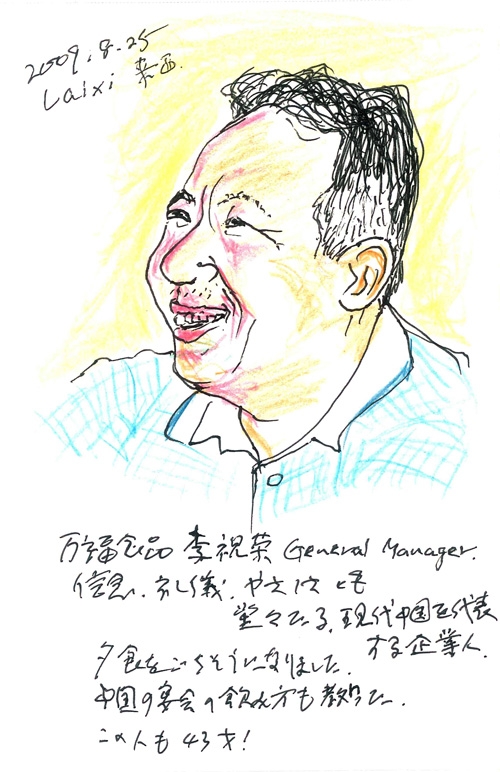 2009.8.25
Laixi 莱西.
万福食品 李祝荣 General Manager.
信念、礼儀、やさしさ とも
堂々たる、現代中国を代表
する企業人.
夕食をごちそうになりました.
中国の宴会の飲み方も教わった.
この人も43才!